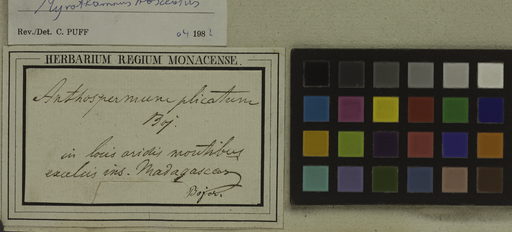 Myrothamnus moschatus
Rev./Det. C. PUFF 04 198
HERBARIUM REGIUM MONACENSE.
Anthospermum plicatum
Boj.
in locis aridis montibus
excelsis ins. Madagascar
Bojer.